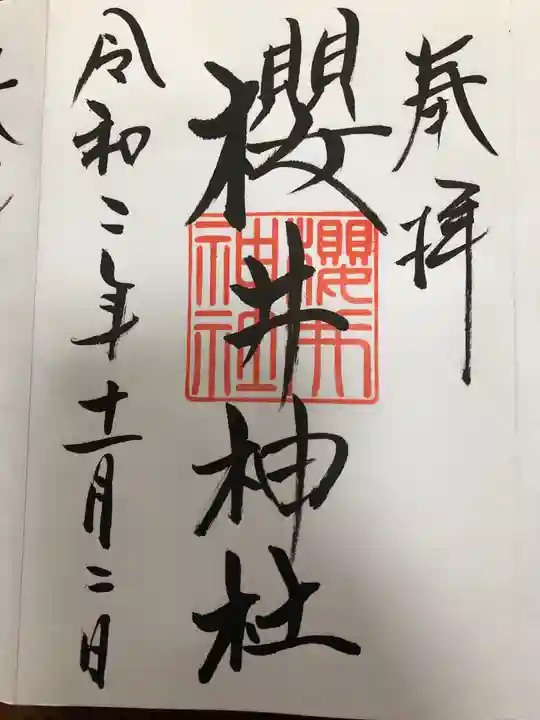 奉拝
櫻井神社
櫻井神社
令和二年十一月二日